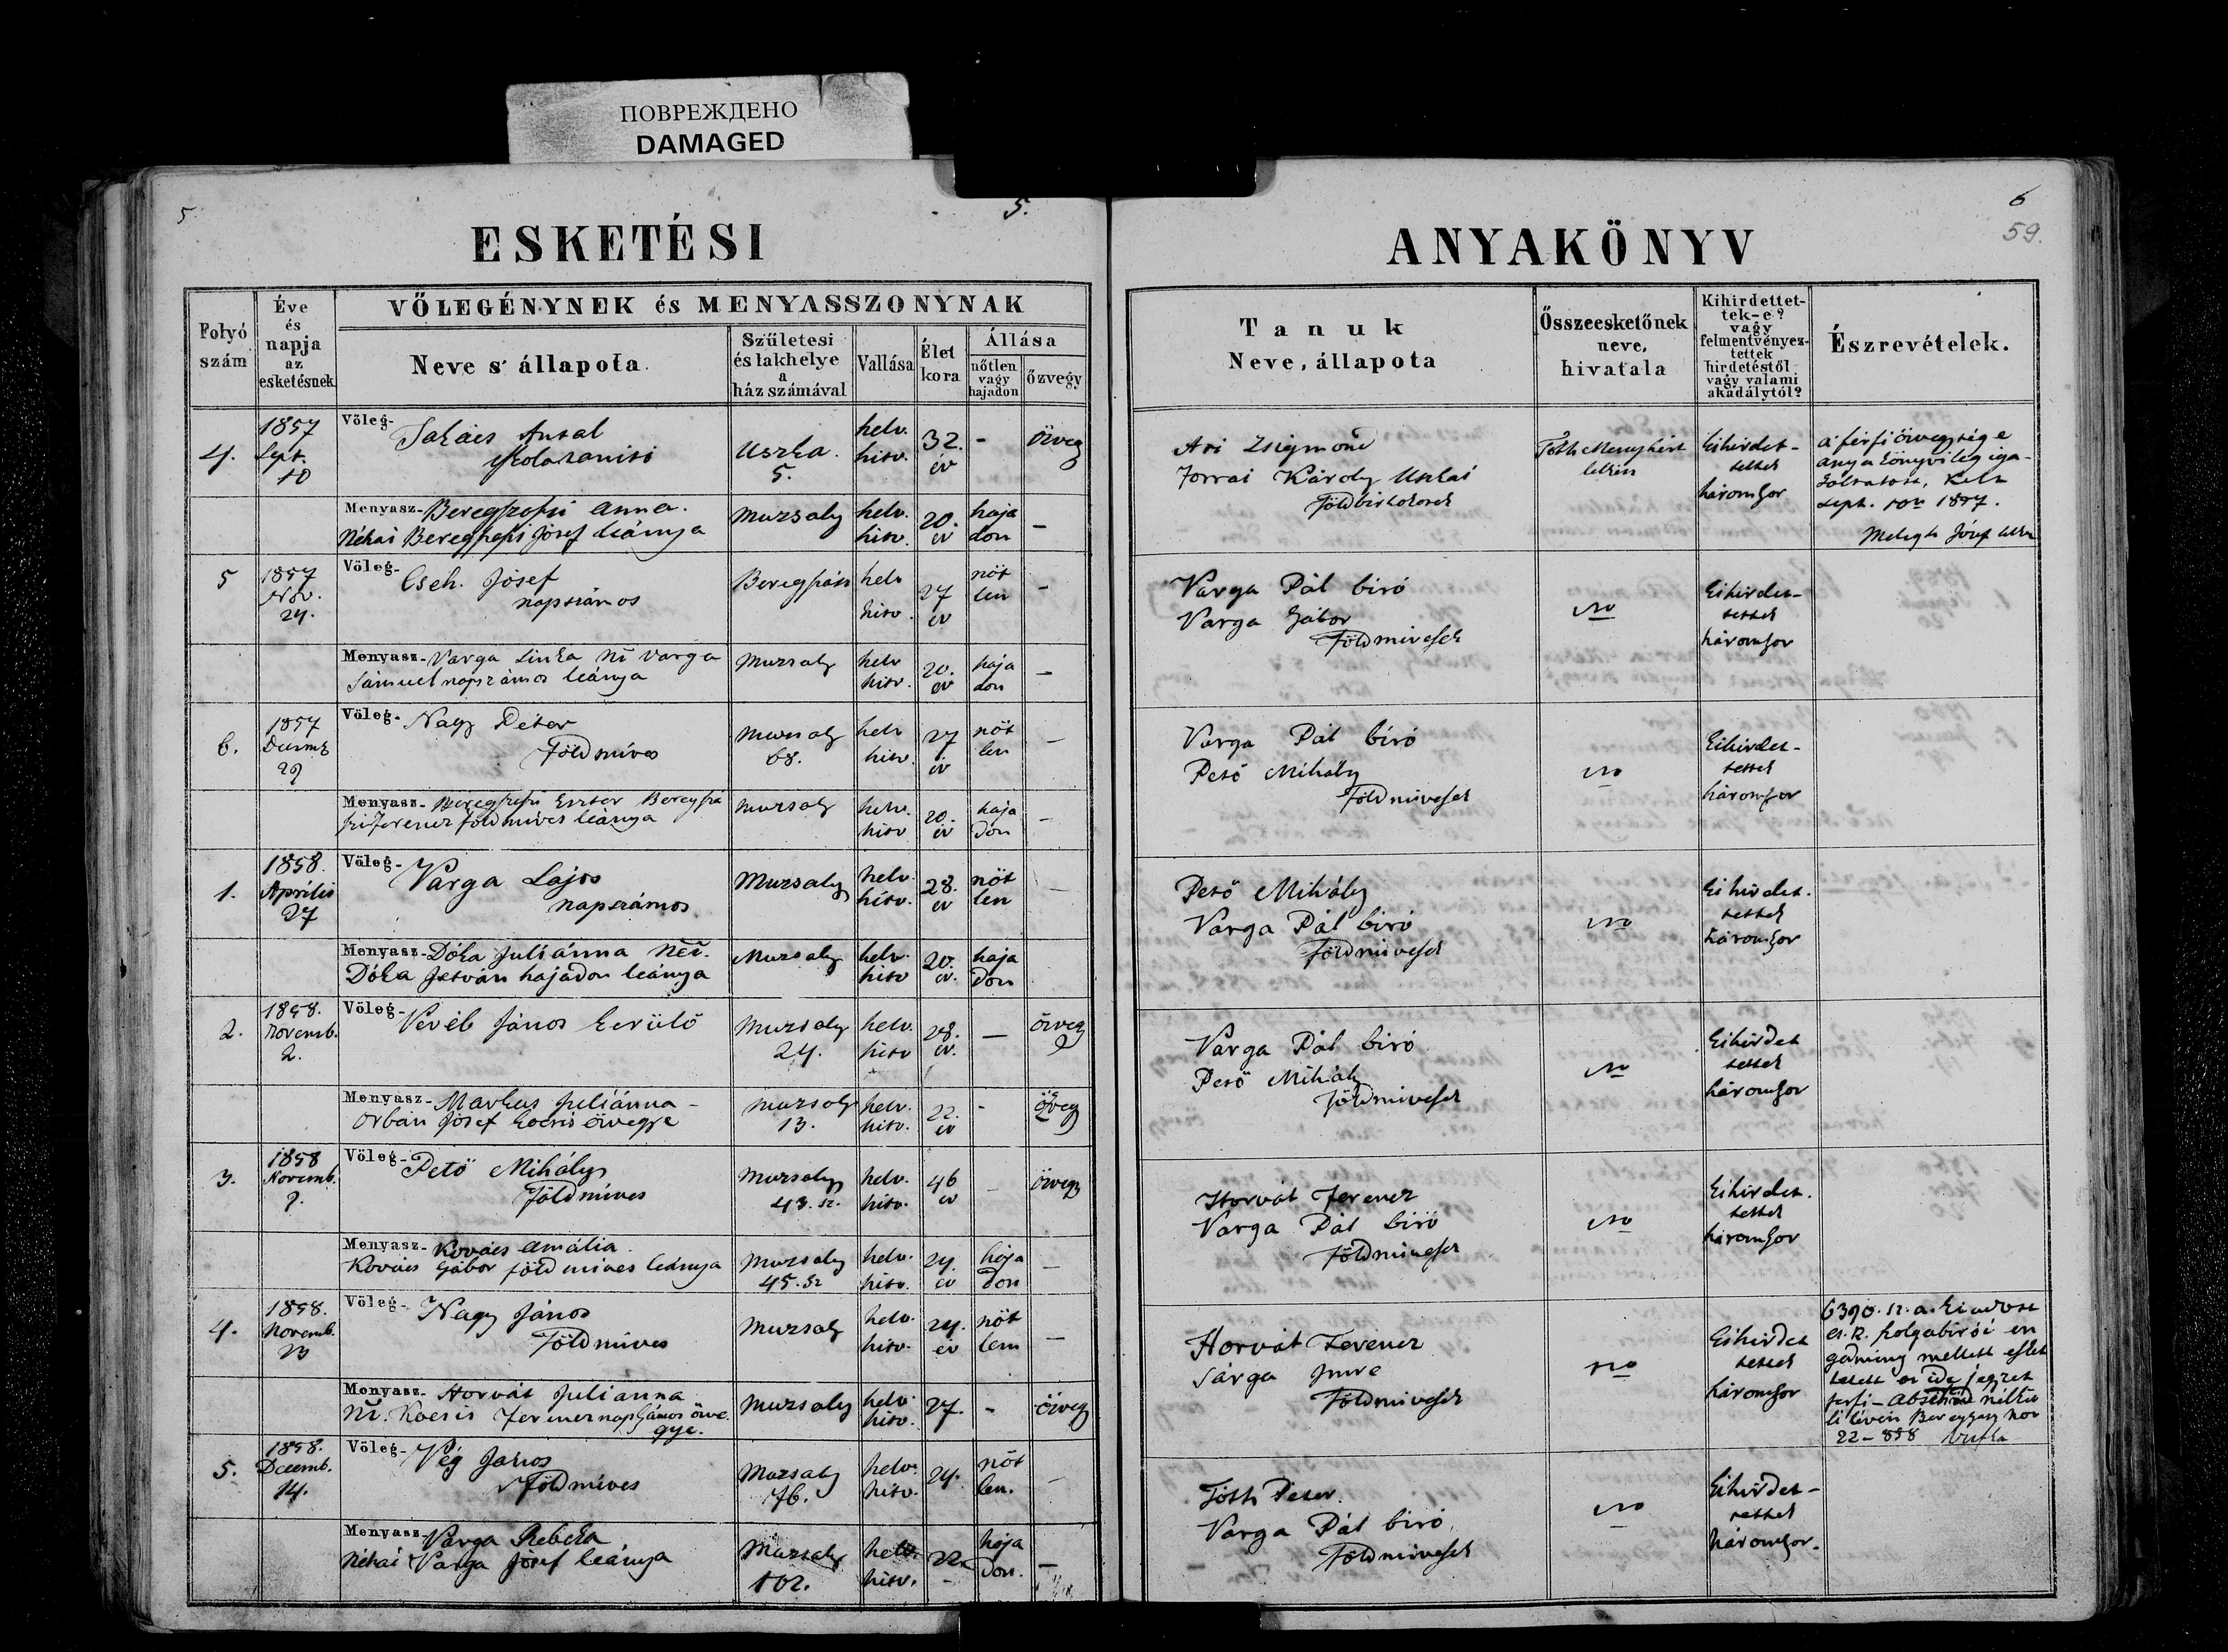 ПОВРЕЖДЕНО
DAMAGED
5 5.
ESKETÉSI
Folyó szám
Éve és napja az esketésnek
VŐLEGÉNYNEK és MENYASSZONYNAK
Neve s' állapota.
Születesi és lakhelye a ház számával
Vallása
Élet kora
Állása
nőtlen vagy hajadon
özvegy
4. 1857 Sept. 10
Vőleg- Takács Antal
Uszka. 5. helv. hitv. 32. év - özvegy
Menyasz- Beregszászi Anna.
Néhai Beregszászi Jósef leánya
Muzsaly helv. hitv. 20. év hajadon -
5 1857 Nov. 24.
Vőleg- Cseh. Jósef
napszámos
Beregszász helv hitv. 27 év nőtlen -
Menyasz- Varga Linka Varga
Sámuel napszámos leánya
Muzsaly helv hitv. 20. év hajadon -
6. 1857 29
Vőleg- Nagy Péter
Földmíves
Muzsaly 68. helv hitv. 27 év nőtlen -
Menyasz- Beregszászi Eszter Beregszászi Ferencz földmíves leánya
Muzsaly helv. hitv 20. év hajadon -
1. 1858. Április 27
Vőleg- Varga Lajos
napszámos
Muzsaly helv. hitv. 28. év nőtlen -
Menyasz- Dóka Juliánna
Dóka István hajadon leánya
Muzsaly helv. hitv 20. év. hajadon
2. 1858. Novemb. 2.
Vőleg- Veréb János kerülő
Muzsaly 24. helv. hitv 28. év. - özvegy
Menyasz- Markus Juliánna -
Orbán Jósef özvegye
Muzsaly 13. helv. hitv. 22. év - özvegy
3. 1858 Novemb. 9.
Vőleg- Pető Mihály
Földmíves
Muzsaly 43. sz. helv. hitv. 46 év - özvegy
Menyasz- Kovács Amália.
Kovács Gábor földmíves leánya
Muzsaly 45. sz helv. hitv. 24. év hajadon -
4. 1858. Novemb. 23
Vőleg- Nagy János
Földmíves
Muzsaly helv. hitv. 24. év nőtlen -
Menyasz- Horvát Julianna
Kocsis Ferencz napszámos özvegye.
Muzsaly helv. hitv. 27. - özvegy
5. 1858. Decemb. 14.
Vőleg- Vég János
Földmíves
Muzsaly 76. helv. hitv. 24. nőtlen. -
Menyasz- Varga Rebeka
Néhai Varga Jósef leánya
Muzsaly 102. helv. hitv. 22 hajadon. -
6
59.
ANYAKÖNYV
Tanuk
Neve, állapota
Összeesketőnek neve, hivatala
Kihirdettettek-e? vagy felmentvényeztettek hirdetéstől vagy valami akadálytól?
Észrevételek.
Ari Zsigmond
Forrai Károly Uszkai
Földbirtokosok
Tóth Menyhért
lelkész
kihirdettettek háromszor
a' férfi özvegysége
anyakönyvileg iga-
zoltatott, Kelt
sept. 10n 1857.
Jósef
Varga Pál biró
Varga Gábor
Földmívesek
kihirdettettek háromszor
Varga Pál biró
Pető Mihály
Földmívesek
kihirdettettek háromszor
Pető Mihály
Varga Pál biró
Földmívesek
kihirdettettek háromszor
Varga Pál biró
Pető Mihály
Földmívesek
kihirdettettek háromszor
Horvát Ferencz
Varga Pál biró
Földmívesek
kihirdettettek háromszor
Horvát Ferencz
Sárga Imre
Földmívesek
kihirdettettek háromszor
6390. sz. a. kiadott
cs. k. szolgabírói en
gedmény mellett esket
22 - 858
Tóth Péter.
Varga Pál biró,
Földmívesek
kihirdettettek háromszor.